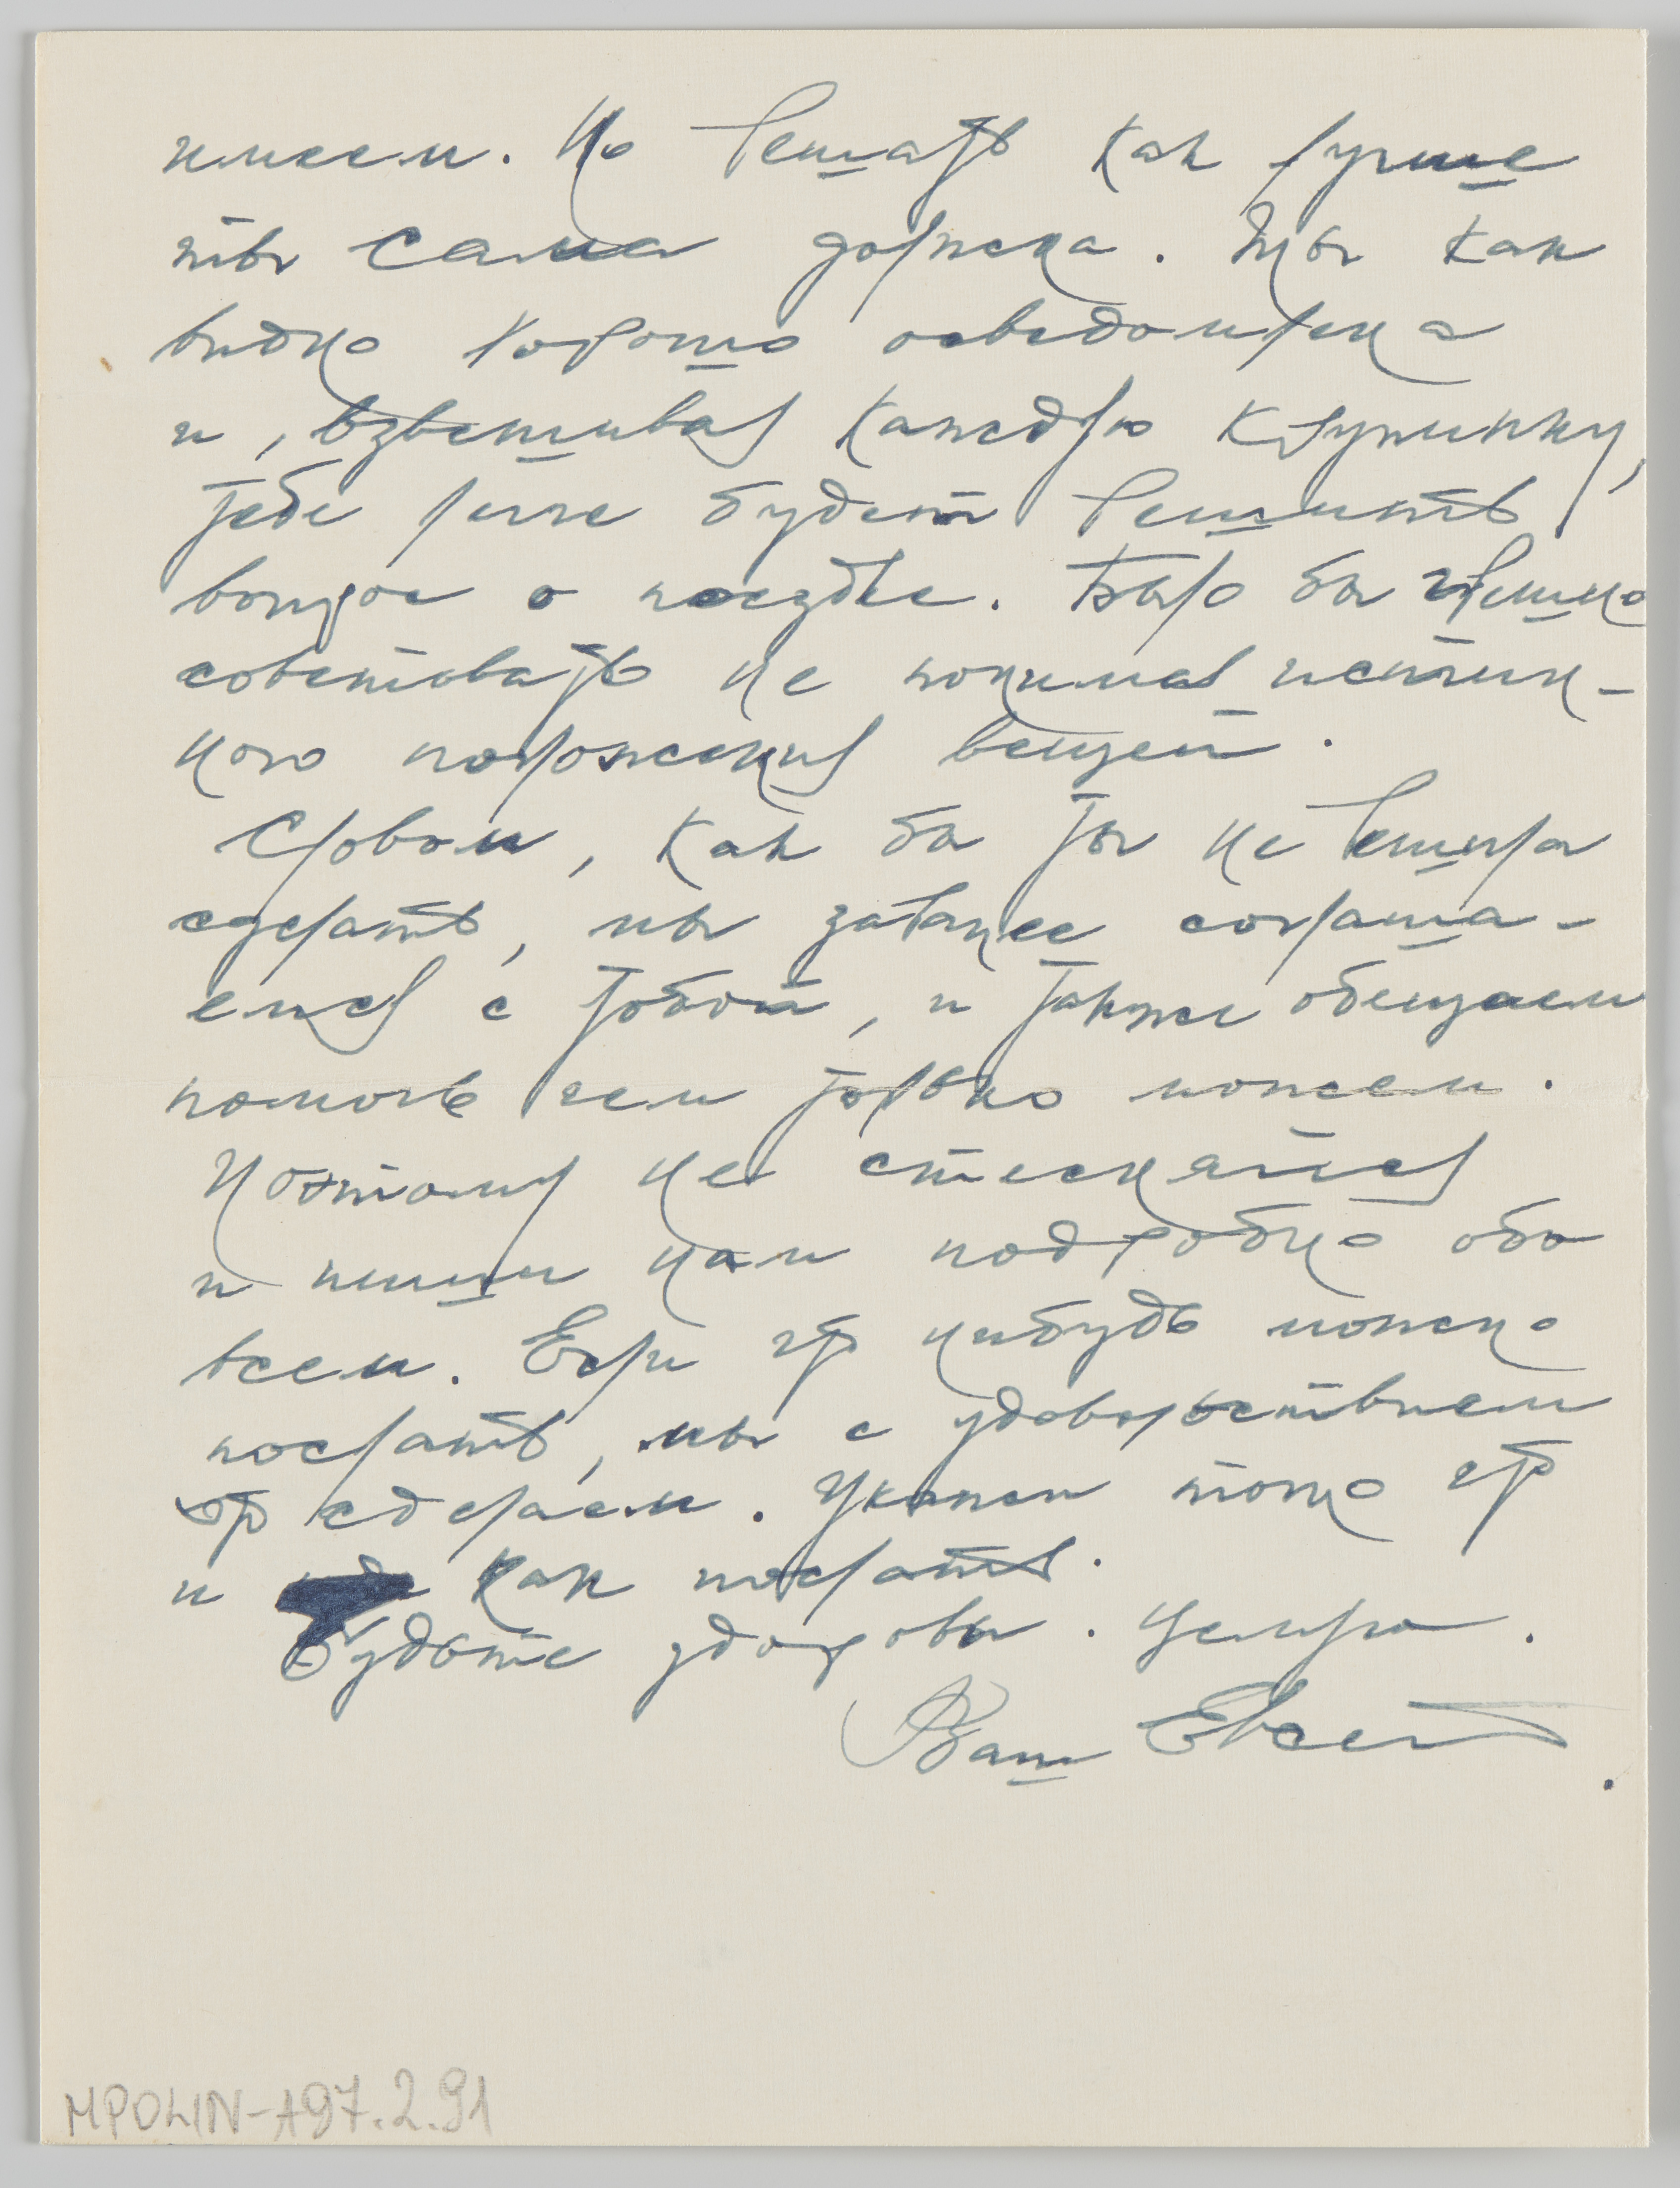 имеем. Но решать как лучше
ты сама должна. Ты как
видно хорошо осведомлена
и, взвешивая каждую крупинку,
тебе легче будет решить
вопрос о поездке. Было бы грешно
советовать не понимая истин-
ного положения вещей.
Словом, как бы ты не решила
сделать, мы заранее соглаша-
емся с тобой, и также обещаем
помочь чем только можем.
Поэтому не стесняйся
и пиши нам подробно обо
всем. Если что нибудь можно
послать, мы с удовольствием
это сделаем. Укажи точно что
и как послать.
Будьте здоровы. Целую.
Ваш Евсей.
MPOLIN-A97.2.91